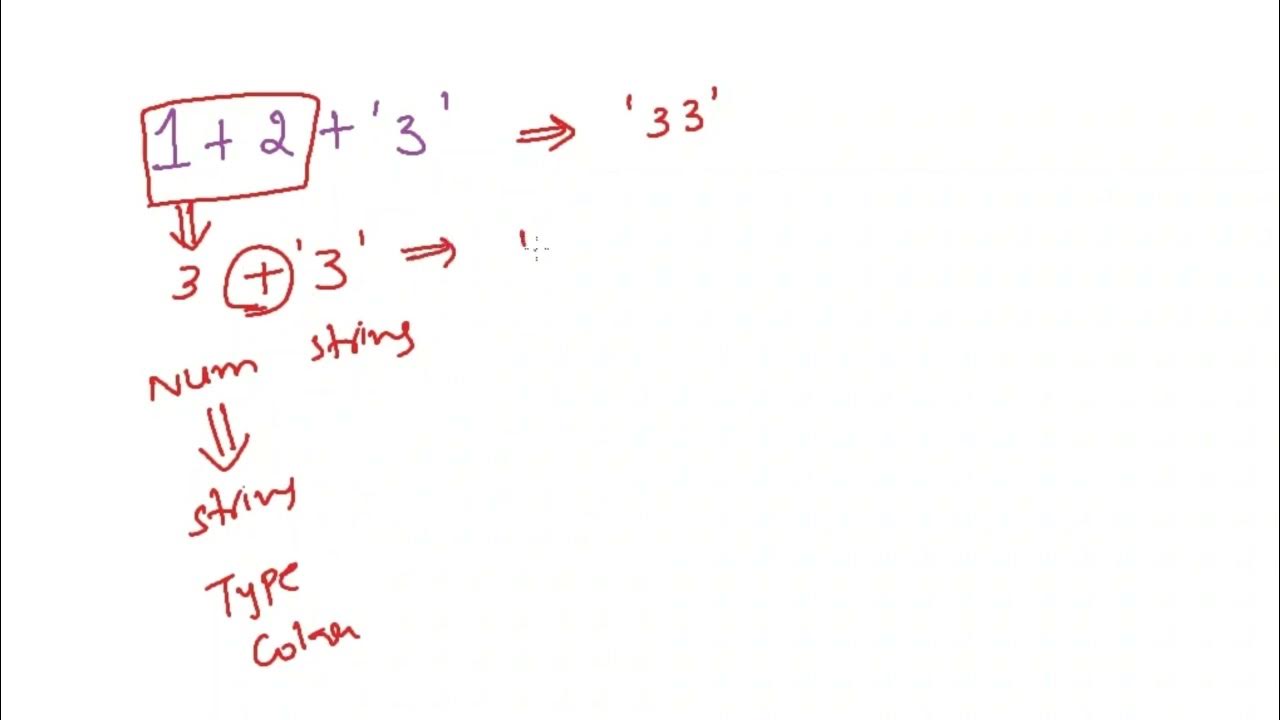 1 + 2 + '3' ⇒ '33'
⇓
3 + '3' ⇒ '
Num string
⇓
string
Type